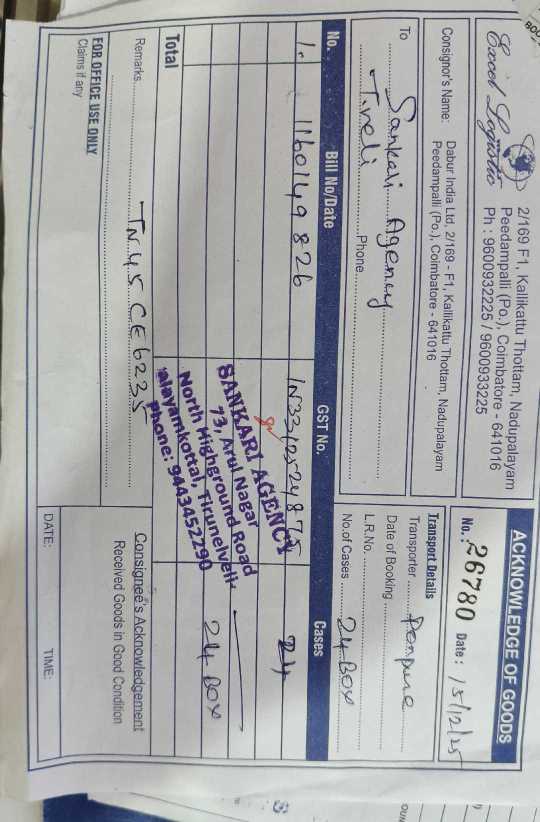 Excel Logistic
2/169 F1, Kallikattu Thottam, Nadupalayam
Peedampalli (Po.), Coimbatore - 641016
Ph : 9600932225 / 9600933225
ACKNOWLEDGE OF GOODS
No. : 26780 Date : 15/12/25
Consignor's Name: Dabur India Ltd, 2/169 - F1, Kallikattu Thottam, Nadupalayam
Peedampalli (Po.), Coimbatore - 641016
To Sankari Agency
Tiveli Phone
Transport Details
Transporter
Date of Booking
L.R.No.
No.of Cases 24 Box
No. Bill No/Date GST No. Cases
1. 1160149826 IN3312524875 24
SANKARI AGENCY
73, Arul Nagar
North Highground Road
Palayamkottai, Tirunelveli
Phone: 9443452290
Total 24 Box
Remarks TN 45 CE 6235
FOR OFFICE USE ONLY
Claims if any
Consignee's Acknowledgement
Received Goods in Good Condition
DATE: TIME: